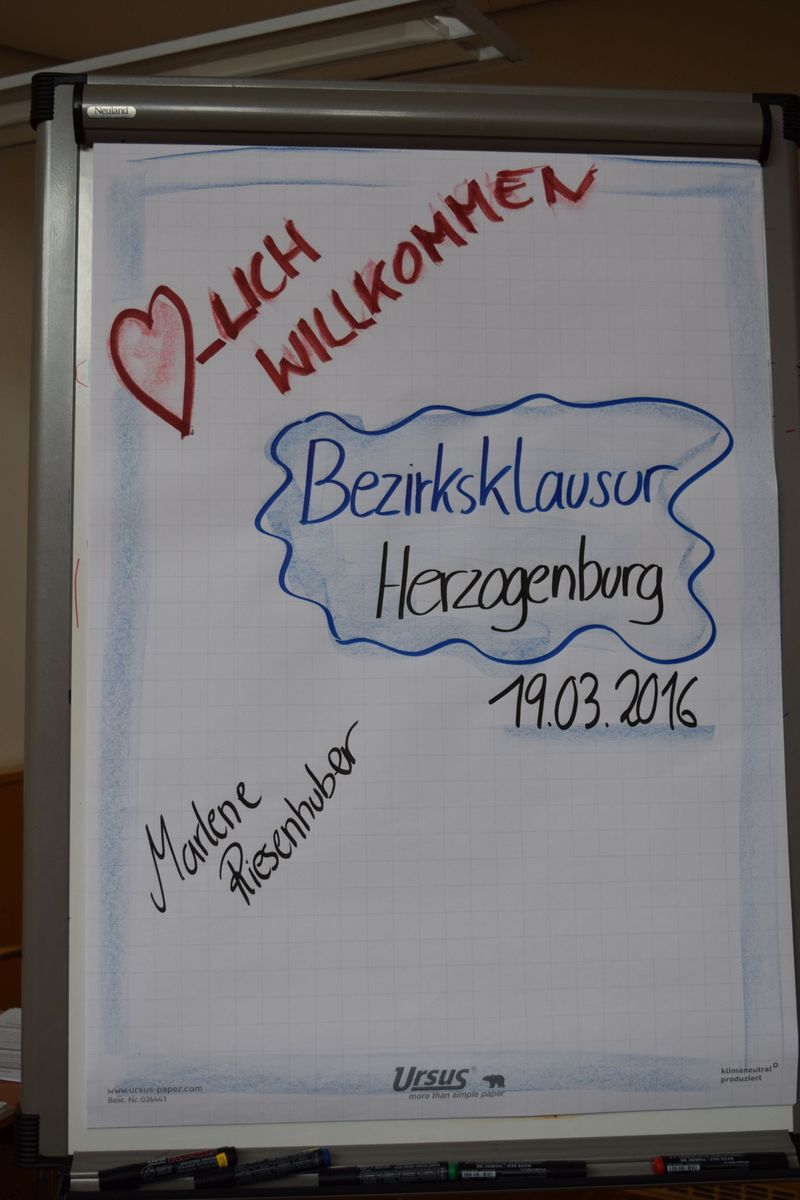 Neuland
-LICH
WILLKOMMEN
Bezirksklausur
Herzogenburg
19.03.2016
Marlene
Riesenhuber
www.ursus-paper.com
Best. Nr. 036441
Ursus®
more than simple paper
klimaneutral
produziert